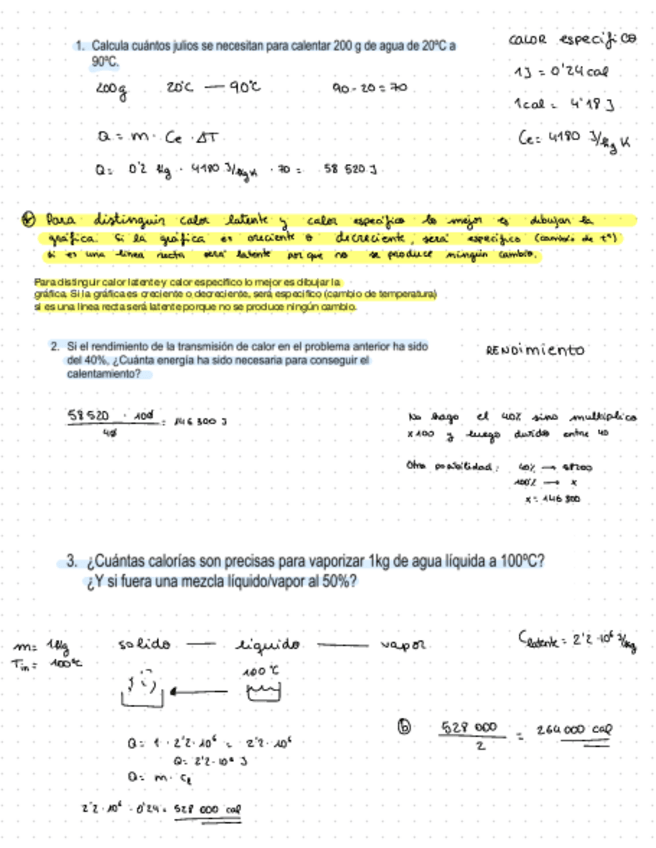 1. Calcula cuántos julios se necesitan para calentar 200 g de agua de 20ºC a
90ºC.
CALOR específico
200g 20ºC — 90ºC 90-20=70
1J = 0'24 cal
1cal = 4'18 J
Q = m · Ce · ΔT
Ce = 4180 J/kg K
Q = 0'2 kg · 4180 J/kg K · 70 = 58 520 J
Para distinguir calor latente y calor específico lo mejor es dibujar la
gráfica. Si la gráfica es creciente o decreciente, será específico (cambio de tª)
si es una linea recta será latente porque no se produce ningún cambio.
Para distinguir calor latente y calor específico lo mejor es dibujar la
gráfica. Si la gráfica es creciente o decreciente, será específico (cambio de temperatura)
si es una línea recta será latente porque no se produce ningún cambio.
2. Si el rendimiento de la transmisión de calor en el problema anterior ha sido
del 40%, ¿Cuánta energía ha sido necesaria para conseguir el
calentamiento?
RENDimiento
58 520 · 100
40
= 146 300 J
No hago el 40% sino multiplico
x 100 y luego divido entre 40
Otra posibilidad: 40% →
100% → x
x = 146 300
3. ¿Cuántas calorías son precisas para vaporizar 1kg de agua líquida a 100ºC?
¿Y si fuera una mezcla líquido/vapor al 50%?
m = 1kg
Tin = 100ºC
solido — líquido — vapor
Clatente = 2'2 · 10⁶ J/kg
100ºC
b 528 000
2
= 264 000 cal
Q = 1 · 2'2 · 10⁶ = 2'2 · 10⁶
Q = 2'2 · 10⁶ J
Q = m · Cl
2'2 · 10⁶ · 0'24 = 528 000 cal